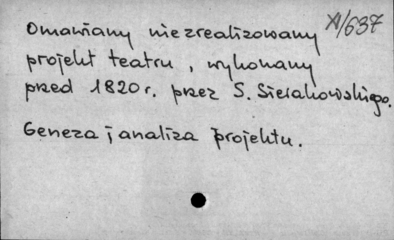 XI/637
Omawiany niezrealizowany
projekt teatru, wykonany
przed 1820 r. przez S. Sierakowskiego.
Geneza i analiza projektu.